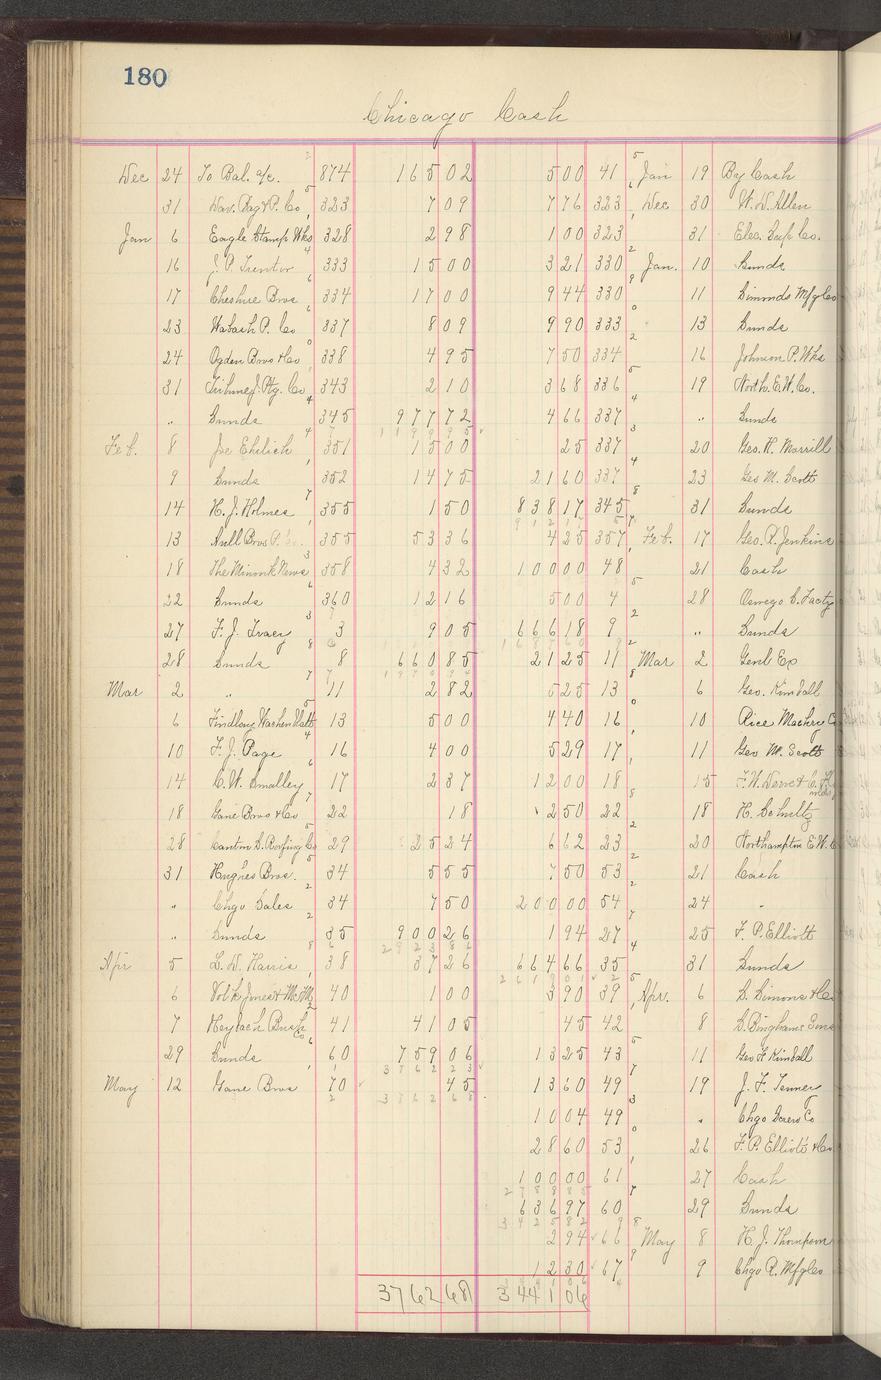 180
Chicago Cash
Dec 24 To Bal. a/c. 874 165 02 5 00 41 Jan 19 By Cash
31 War. Bag & P. Co 323 7 09 7 76 323 Dec 30 W. D. Allen
Jan 6 Eagle Stamp Wks 328 2 98 1 00 323 31 Elec. Sup Co.
16 J. P. Trenter 333 15 00 3 21 330 Jan. 10 Sunds
17 Cheshire Bros 334 17 00 9 44 330 11 Simonds Mfg Co
23 Wabash P. Co 337 8 09 9 90 333 13 Sunds
24 Ogden Bros & Co 338 4 95 7 50 334 16 Johnson P. Wks
31 Ptg. Co 343 2 10 3 68 336 19 North. E. W. Co.
" Sunds 345 977 72 4 66 337 " Sunds
Feb. 8 Joe Ehrlich 351 15 00 25 337 20 Geo. H. Morrill
9 Sunds 352 14 75 21 60 337 23 Geo M. Scott
14 H. J. Holmes 355 1 50 838 17 345 31 Sunds
13 Bros 355 53 36 4 25 357 Feb. 17 Geo. R. Jenkins
18 The Minonk News 358 4 32 100 00 48 21 Cash
22 Sunds 360 12 16 5 00 4 28 Oswego S. Facty
27 F. J. Tracy 3 9 05 666 18 9 " Sunds
28 Sunds 8 660 85 21 25 11 Mar 2 Genl Ex
Mar 2 " 11 2 82 5 25 13 6 Geo. Kimball
6 Findlay 13 5 00 4 40 16 10 Rice Machry C
10 F. J. Page 16 4 00 5 29 17 11 Geo M. Scott
14 C. W. Smalley 17 2 37 12 00 18 15 F. W.
18 Gane Bros & Co 22 18 2 50 22 18 H. Schultz
28 Canton S. Roofing Co 29 25 24 6 62 23 20 Northampton E. W. C
31 Hughes Bros. 34 5 55 7 50 53 21 Cash
" Chgo Sales 34 7 50 200 00 54 24 "
" Sunds 35 900 26 1 94 27 25 F. P. Elliott
Apr 5 L. W. Harris 38 37 26 664 66 35 31 Sunds
6 Volk Jones & McM 40 1 00 3 90 39 Apr. 6 S. Simons & Co
7 Heybach Bush Co 41 41 05 45 42 8 S. Binghams Sons
29 Sunds 60 759 06 13 25 43 11 Geo F Kimball
May 12 Gane Bros 70 45 13 60 49 19 J. F. Tenner
10 04 49 " Chgo Screw Co
28 60 53 26 F. P. Elliott & Co
100 00 61 27 Cash
636 97 60 29 Sunds
2 94 66 May 8 H. J. Thompson
12 30 67 9 Chgo R. Mfg Co
3762 68 3441 06